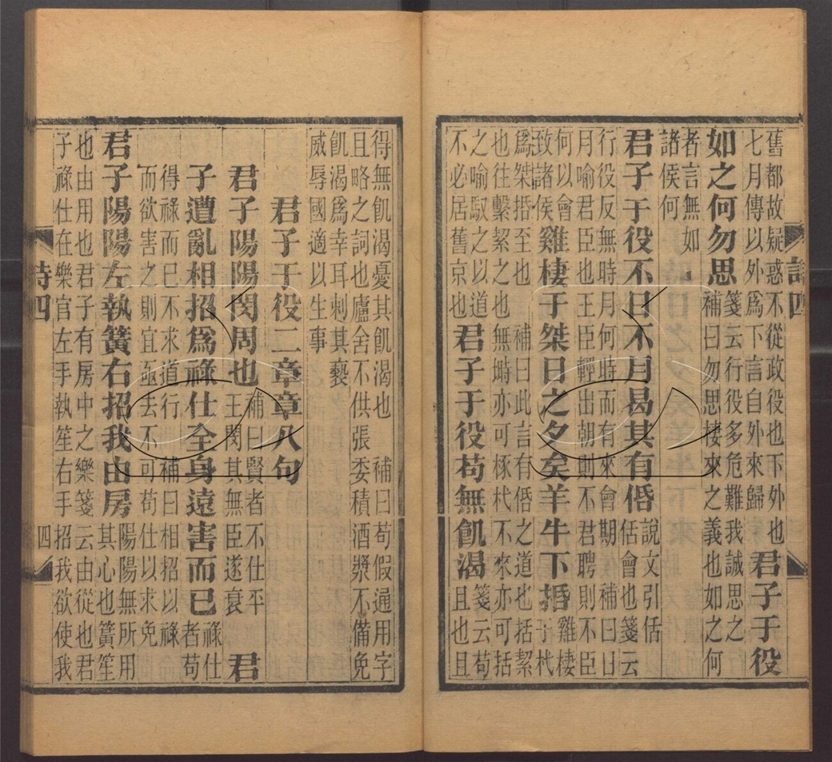 詩四
舊都故疑惑不從政役也下外也
七月傳以外爲下言自外來歸
君子于役
如之何勿思
箋云行役多危難我誠思之
補曰勿思棲來之義也如之何
者言無如
諸侯何
君子于役不日不月曷其有佸
說文引佸
佸會也箋云
行役反無時月何時而有來會期 補曰日
月喻君臣也王臣輕出朝則不君聘則不臣
何以會
致諸侯
雞棲于桀日之夕矣羊牛下括
雞棲
于杙
爲桀括至也 補曰此言有佸之道也括絜
也往繫絜之也無塒亦可棲杙不來亦可括
之喻馭之以道
不必居舊京也
君子于役苟無飢渴
箋云苟
且也且
得無飢渴憂其飢渴也 補曰苟假通用字
且略之詞也廬舍不供張委積酒漿不備免
飢渴爲幸耳刺其褻
威辱國適以生事
君子于役二章章八句
君子陽陽閔周也
補曰賢者不仕平
王閔其無臣遂衰
君
子遭亂相招爲祿仕全身遠害而已
祿仕
者苟
得祿而已不求道行 補曰相招以祿
而欲害之則宜亟去不可苟仕以求免
君子陽陽左執簧右招我由房
陽陽無所用
其心也簧笙
也由用也君子有房中之樂箋云由從也君
子祿仕在樂官左手執笙右手招我欲使我
詩四
四